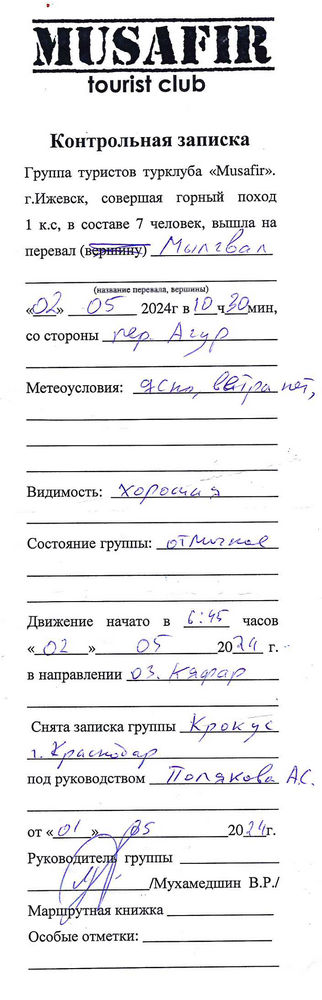 MUSAFIR
tourist club
Контрольная записка
Группа туристов турклуба «Musafir».
г.Ижевск, совершая горный поход
1 к.с, в составе 7 человек, вышла на
перевал (вершину) Мылгвал
(название перевала, вершины)
«02» 05 2024г в 10 ч 30 мин,
со стороны пер. Агур
Метеоусловия: ясно, ветра нет,
Видимость: хорошая
Состояние группы: отличное
Движение начато в 6:45 часов
«02» 05 2024 г.
в направлении оз. Кяфар
Снята записка группы Крокус
г. Краснодар
под руководством Полякова А.С.
от «01» 05 2024г.
Руководитель группы
/Мухамедшин В.Р./
Маршрутная книжка
Особые отметки: